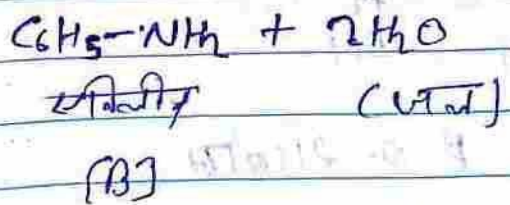 C6H5-NH2 + 2H2O
एनिलीन (जल)
[B]